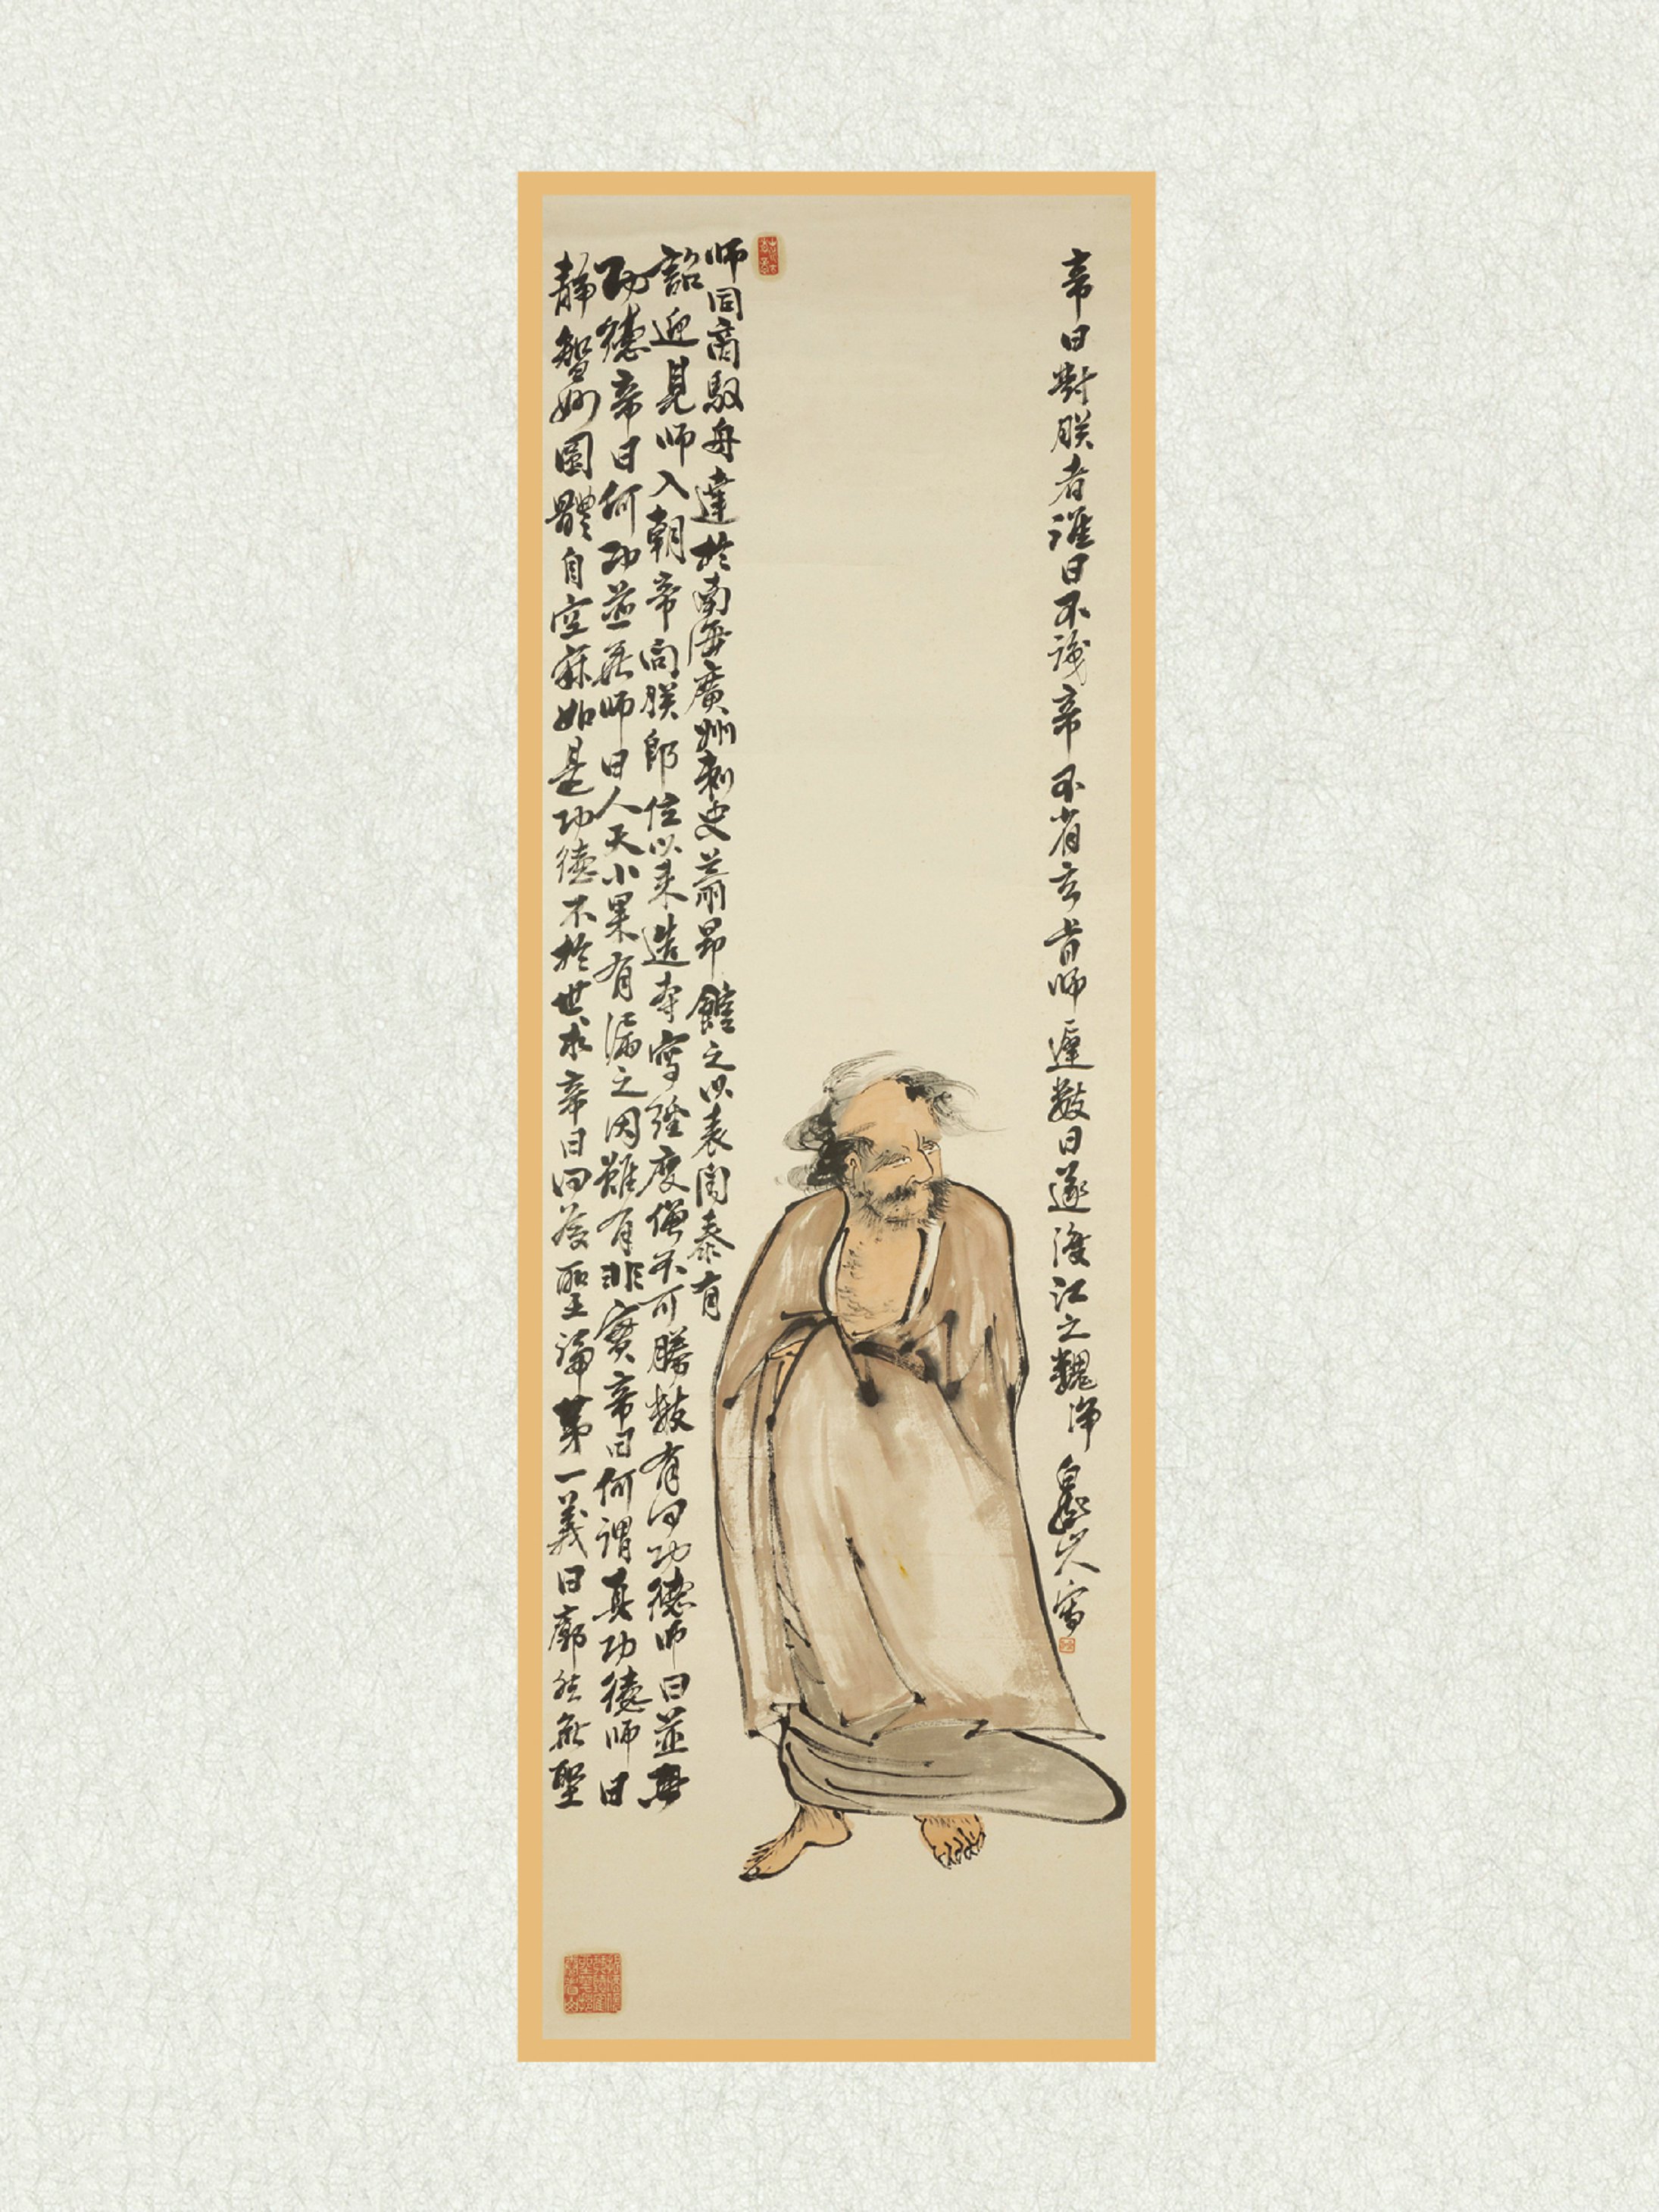 师同商馭舟達於南海廣州刺史蕭昂館之以表聞奏有
詔迎見师入朝帝問朕即位以来造寺寫經度僧不可勝數有何功德师曰並無
功德帝曰何功並無师曰人天小果有漏之因雖有非實帝曰何謂真功德师曰
静智妙圓體自空寂如是功德不於世求帝曰何為聖諦第一義曰廓然無聖
帝曰對朕者誰曰不識帝不省玄旨师遲數日遂渡江之魏 白龍山人寫